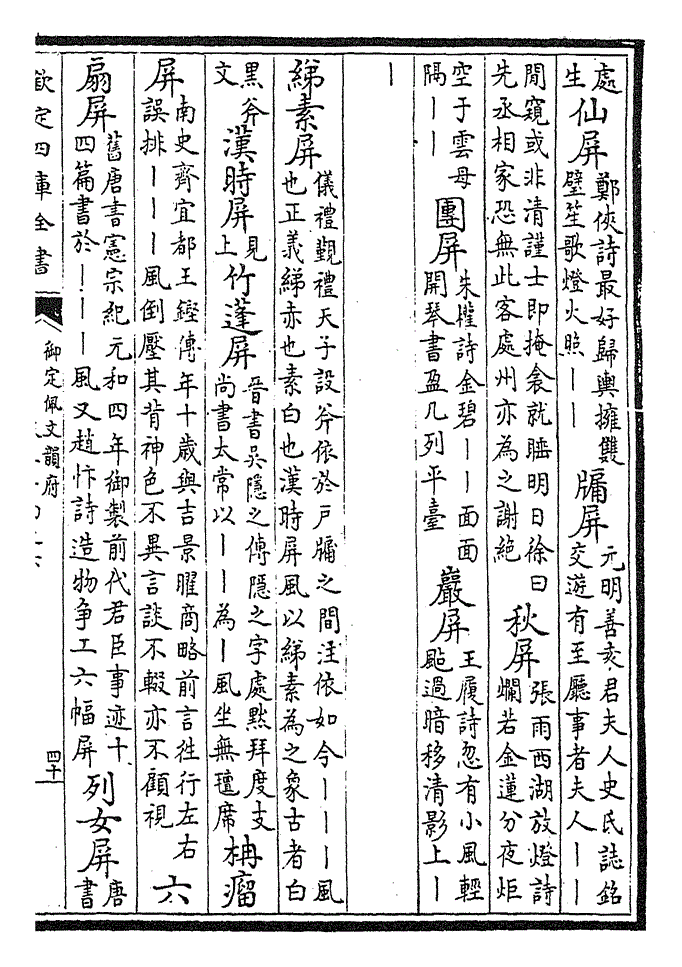 處生仙屏鄭俠詩最好歸輿擁雙璧笙歌燈火照丨丨牖屏元明善亥君夫人史氏誌銘交遊有至廳事者夫人丨丨
閒窺或非清謹士即掩衾就睡明日徐曰先丞相家恐無此客處州亦為之謝絶秋屏張雨西湖放燈詩爛若金蓮分夜炬
空于雲母隔丨丨團屏朱權詩金碧丨丨面面開琴書盈几列平臺巖屏王履詩忽有小風輕颭過暗移清影上丨
丨
綈素屏儀禮覲禮天子設斧依於戶牖之間注依如今丨丨丨風也正義綈赤也素白也漢時屏風以綈素為之象古者白
黑斧文漢時屏見上竹蓬屏晉書吳隱之傳隱之字處黙拜度支尚書太常以丨丨為丨風坐無氊席柟瘤
屏南史齊宜都王鏗傳年十歲與吉景曜商略前言徃行左右誤排丨丨丨風倒壓其背神色不異言談不輟亦不顧視六
扇屏舊唐書憲宗紀元和四年御製前代君臣事迹十四篇書於丨丨丨風又趙忭詩造物争工六幅屏列女屏唐書
欽定四庫全書
御定佩文韻府
四十